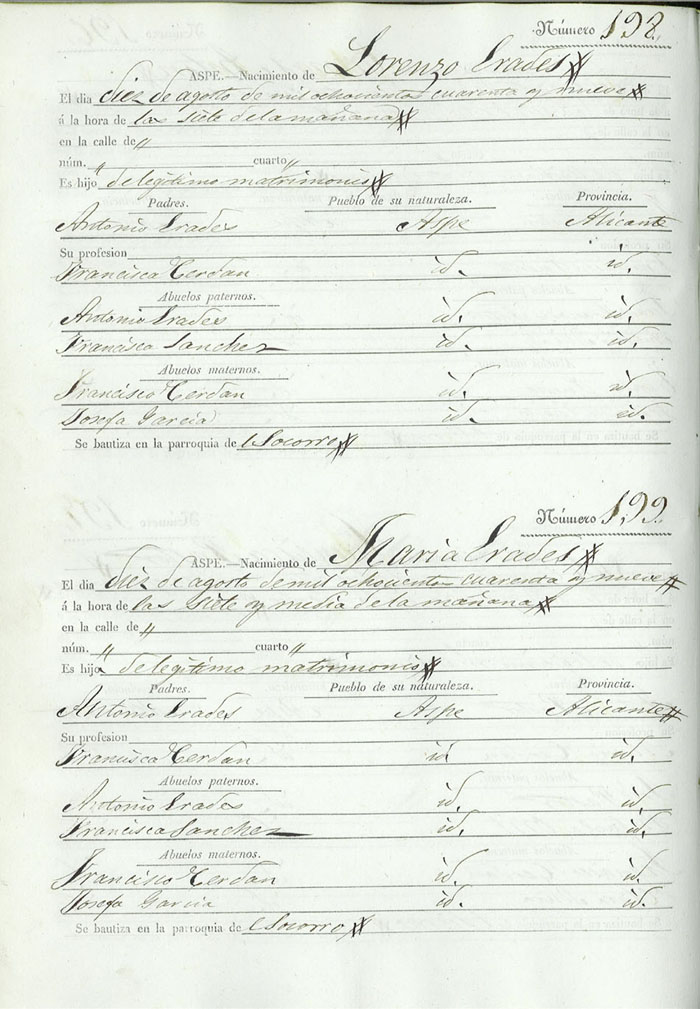 Número 198.
ASPE.—Nacimiento de Lorenzo Erades
El dia diez de agosto de mil ochocientos cuarenta y nueve
á la hora de las siete de la mañana
en la calle de "
núm. " cuarto "
Es hijo de legitimo matrimonio
Padres. Pueblo de su naturaleza. Provincia.
Antonio Erades Aspe Alicante
Su profesion
Francisca Cerdan id. id.
Abuelos paternos.
Antonio Erades id. id.
Francisca Sanchez id. id.
Abuelos maternos.
Francisco Cerdan id. id.
Josefa Garcia id. id.
Se bautiza en la parroquia de l Socorro
Número 199.
ASPE.—Nacimiento de Maria Erades
El dia diez de agosto de mil ochocientos cuarenta y nueve
á la hora de las siete y media de la mañana
en la calle de "
núm. " cuarto "
Es hija de legitimo matrimonio
Padres. Pueblo de su naturaleza. Provincia.
Antonio Erades Aspe Alicante
Su profesion
Francisca Cerdan id. id.
Abuelos paternos.
Antonio Erades id. id.
Francisca Sanchez id. id.
Abuelos maternos.
Francisco Cerdan id. id.
Josefa Garcia id. id.
Se bautiza en la parroquia de l Socorro